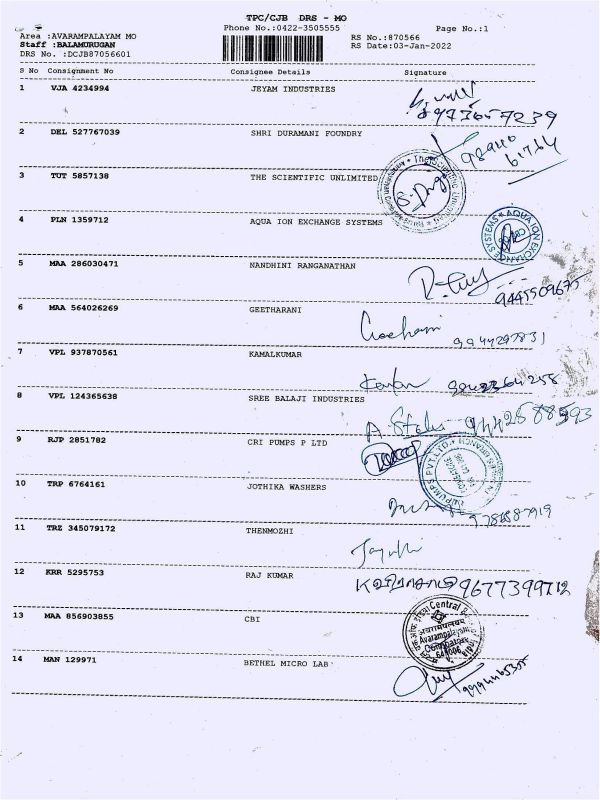 TPC/CJB DRS - MO
Phone No.:0422-3505555 Page No.:1
Area :AVARAMPALAYAM MO RS No.:870566
Staff :BALAMURUGAN RS Date:03-Jan-2022
DRS No. :DCJB87056601
S No Consignment No Consignee Details Signature
1 VJA 4234994 JEYAM INDUSTRIES
2 DEL 527767039 SHRI DURAMANI FOUNDRY
3 TUT 5857138 THE SCIENTIFIC UNLIMITED
4 PLN 1359712 AQUA ION EXCHANGE SYSTEMS
AQUA ION EXCHANGE SYSTEMS
5 MAA 286030471 NANDHINI RANGANATHAN
9445509675
6 MAA 564026269 GEETHARANI
9944297831
7 VPL 937870561 KAMALKUMAR
8 VPL 124365638 SREE BALAJI INDUSTRIES
9442588593
9 RJP 2851782 CRI PUMPS P LTD
10 TRP 6764161 JOTHIKA WASHERS
11 TRZ 345079172 THENMOZHI
12 KRR 5295753 RAJ KUMAR
9677399712
13 MAA 856903855 CBI
Avarampalayam
Coimbatore
641006
14 MAN 129971 BETHEL MICRO LAB